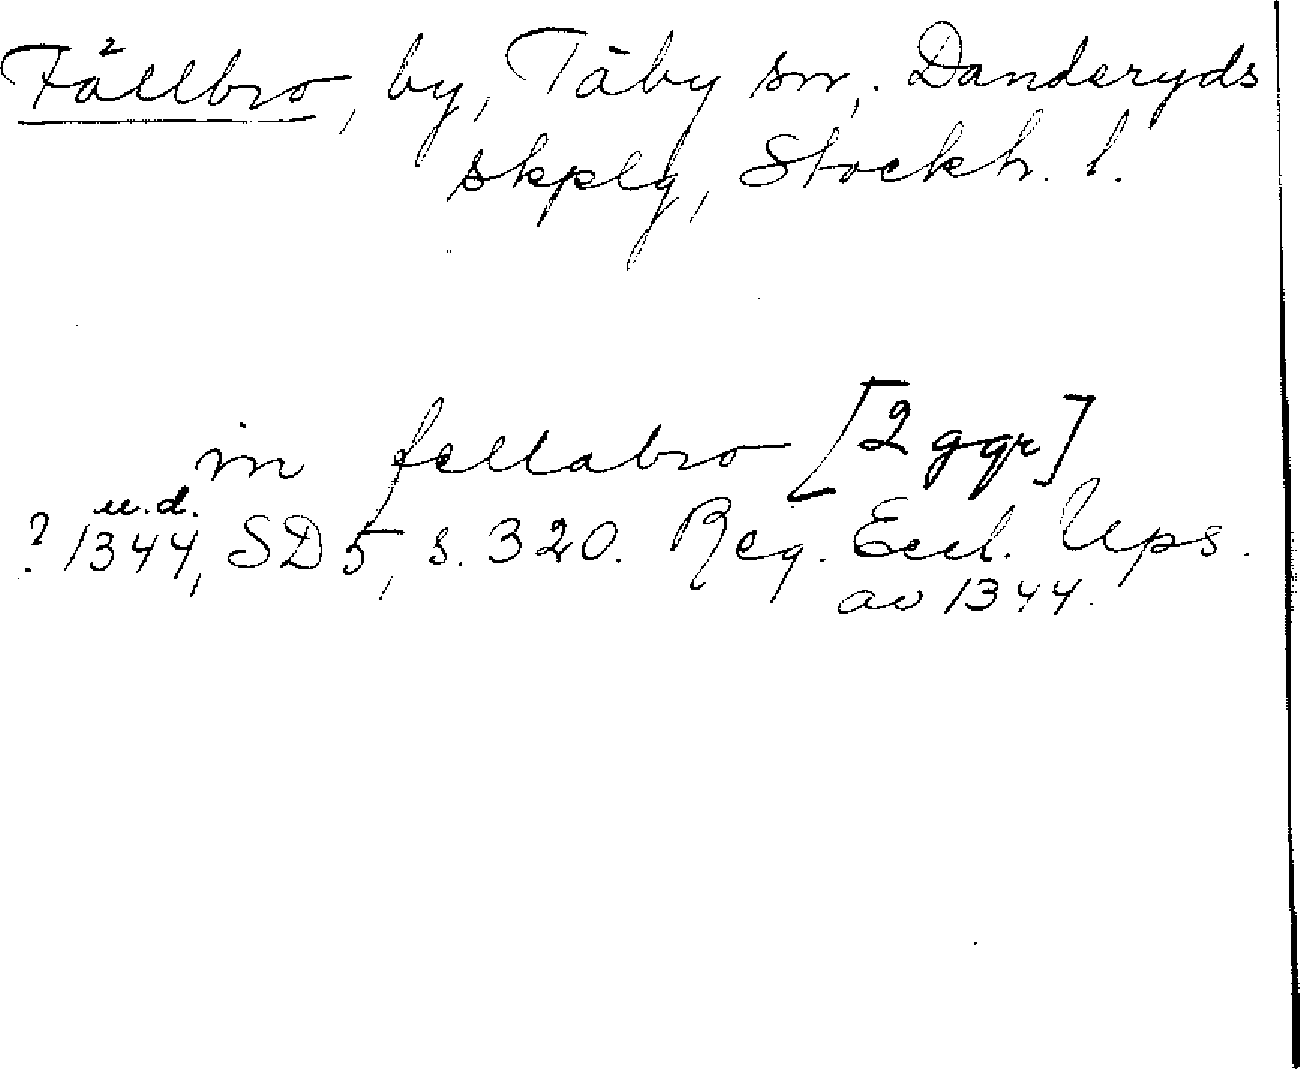 Fällbro, by, Täby sn, Danderyds
skplg, Stockh. l.
in fellabro [2 ggr]
u.d.
? 1344, SD 5, s. 320. Reg. Eccl. Ups.
av 1344.